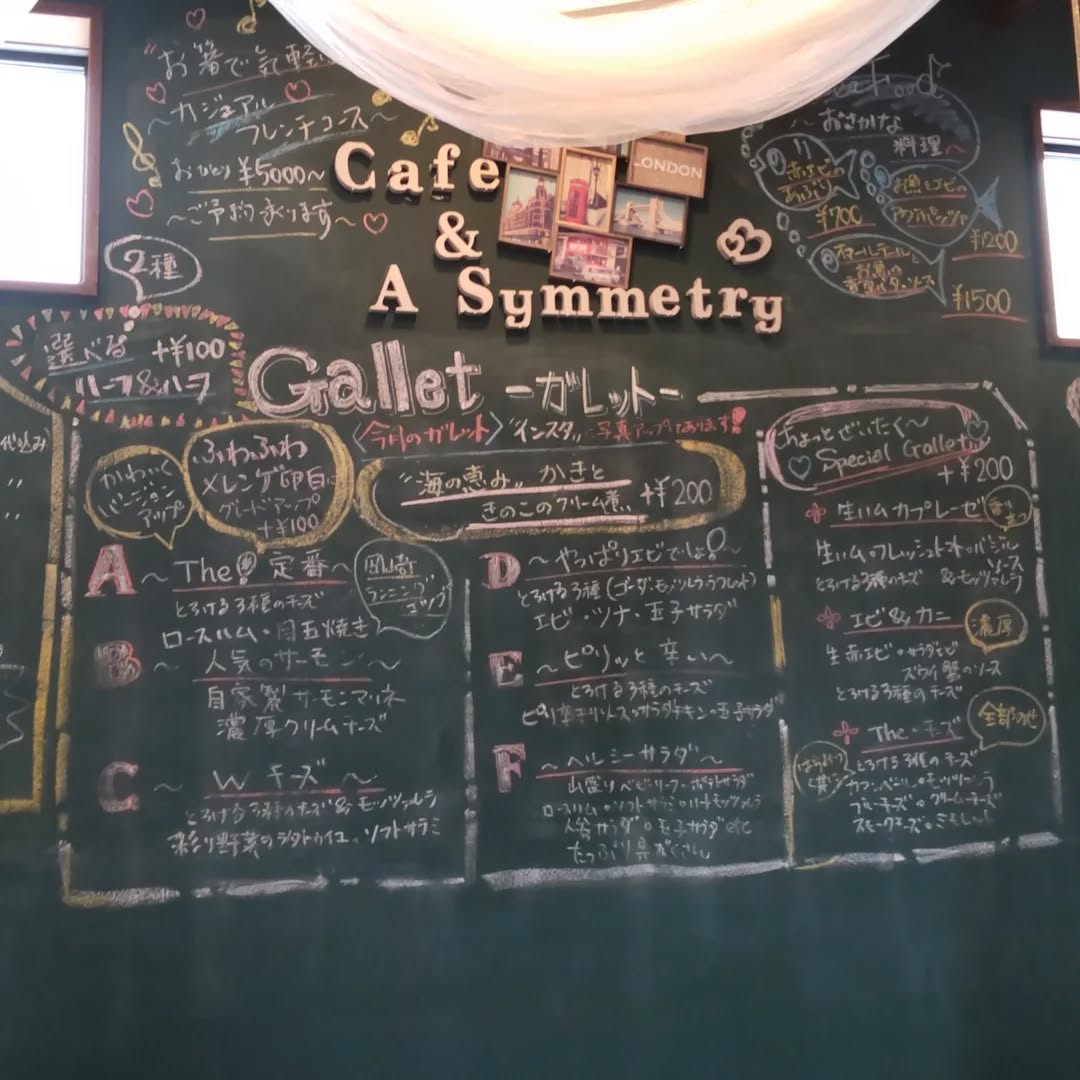 "お箸で気軽
～カジュアル
フレンチコース～
おひとり ¥5000～
～ご予約承ります～
Cafe
&
A Symmetry
LONDON
Food
～おさかな
料理～
赤エビの
あぶり
¥700
お魚とエビの
¥1200
¥1500
2種
選べる +¥100
ハーフ&ハーフ
Gallet -ガレット-
〈今月のガレット〉 "インスタ"に写真アップしてあります!
"海の恵み" かきと
きのこのクリーム煮 +¥200
かわいく
バージョン
アップ
ふわふわ
メレンゲ卵白に
グレードアップ
+¥100
A ～The! 定番～
とろける3種のチーズ
ロースハム・目玉焼き
岡崎
ランニング
エッグ
B ～人気のサーモン～
自家製サーモンマリネ
濃厚クリームチーズ
C ～W チーズ～
とろける3種のチーズ&モッツァレラ
彩り野菜のラタトゥイユ、ソフトサラミ
D ～やっぱりエビでしょ!～
とろける3種(ゴーダ・モッツレラ・ラフレット)
エビ・ツナ・玉子サラダ
E ～ピリッと辛い～
とろける3種のチーズ
ピリ辛チリソース・サラダチキン・玉子サラダ
F ～ヘルシーサラダ～
山盛りベビーリーフ・ポテトサラダ
ロースハム・ソフトサラミ・ハートモッツァレラ
玉子サラダ etc
たっぷり具だくさん
ちょっとぜいたく～
Special Gallet
+¥200
生ハムカプレーゼ
生ハム・フレッシュトマト・バジル
ソース
とろける3種のチーズ &モッツァレラ
エビ&カニ
濃厚
生赤エビ・サラダエビ
ズワイ蟹のソース
とろける3種のチーズ
全部のせ
The・チーズ
とろける3種のチーズ
カマンベール・モッツァレラ
ブルーチーズ・クリームチーズ
スモークチーズ・ミモレット